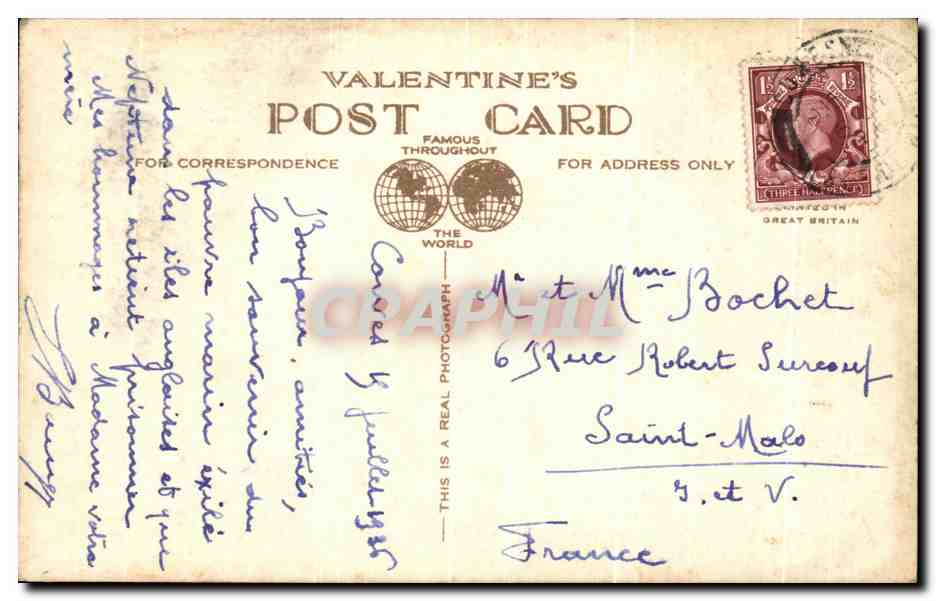 VALENTINE'S
POST CARD
FAMOUS
THROUGHOUT
FOR CORRESPONDENCE
FOR ADDRESS ONLY
THE
WORLD
1½ 1½
THREE HALFPENCE
PRINTED IN
GREAT BRITAIN
THIS IS A REAL PHOTOGRAPH
CPAPHIL
Cowes Juillet 1936
Bonjour, amitiés,
bon souvenir du
pauvre marin éxilé
dans les îles anglaises et que
Neptune retient prisonnier
Mes hommages à Madame votre
mère
Mr et Mme Bochet
6 Rue Robert Surcouf
Saint-Malo
I. et V.
France